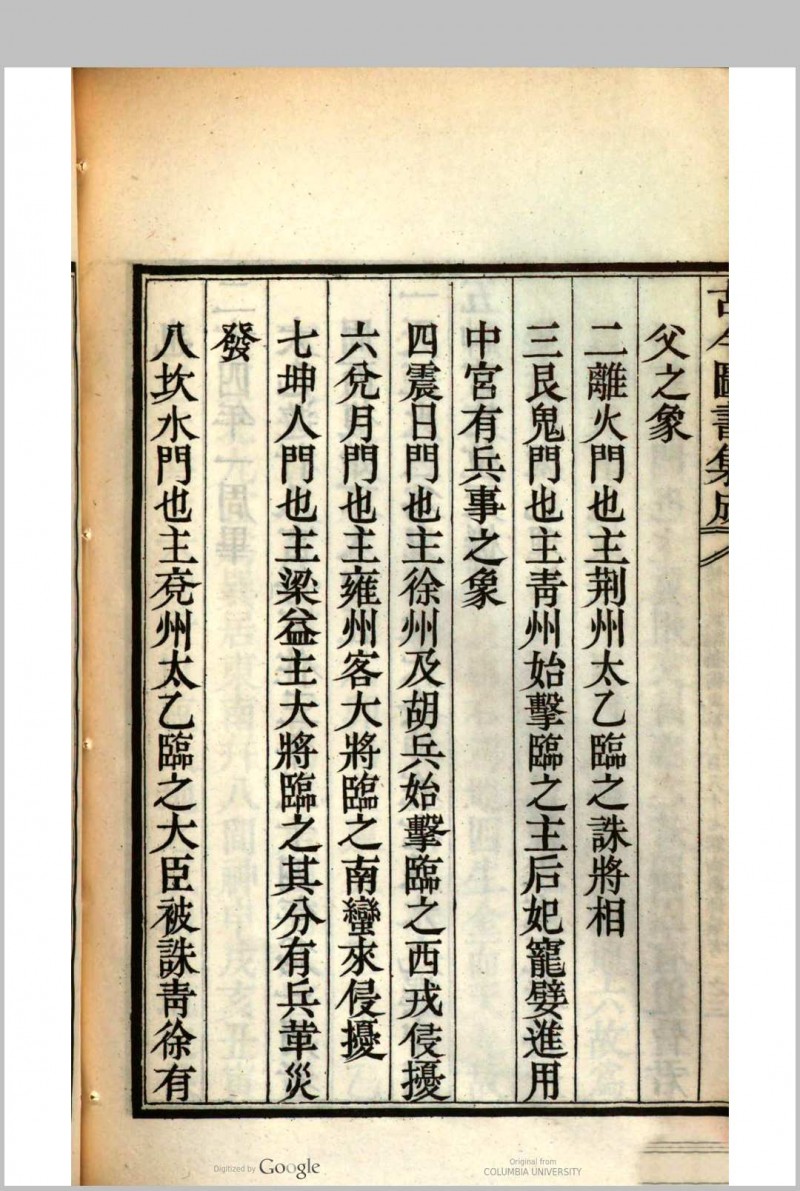 古今圖書集成
父之象
二離火門也主荆州太乙臨之誅將相
三艮鬼門也主靑州始擊臨之主后妃寵嬖進用
中宮有兵事之象
四震日門也主徐州及胡兵始擊臨之西戎侵擾
六兌月門也主雍州客大將臨之南蠻來侵擾
七坤人門也主梁益主大將臨之其分有兵革災
發
八坎水門也主兗州太乙臨之大臣被誅靑徐有
Digitized by Google
Original from
COLUMBIA UNIVERSITY